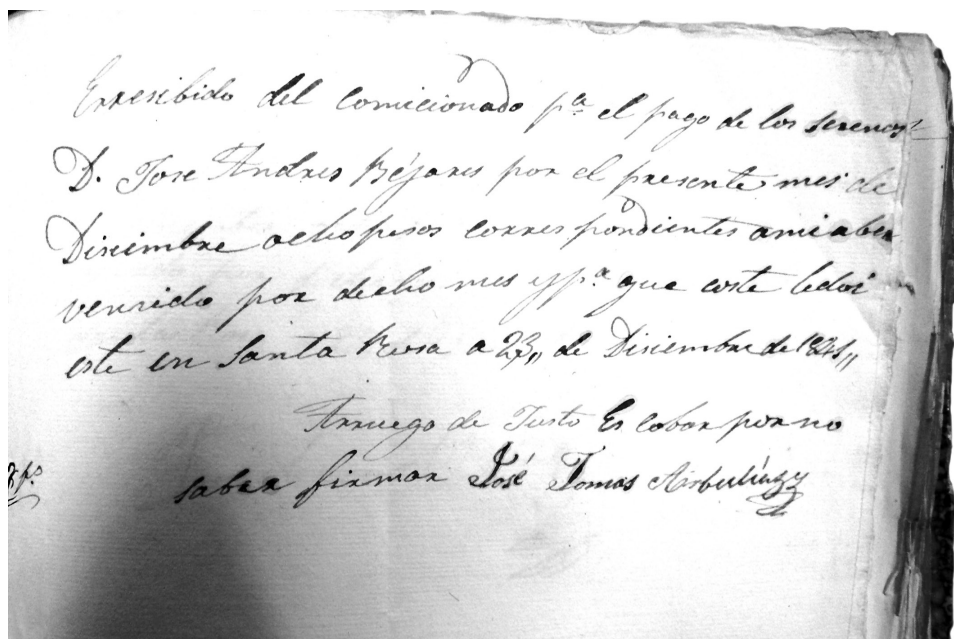 Erresibido del comicionado pa. el pago de los serenos
D. Jose Andres Béjares por el presente mes de
Disiembre ocho pesos correspondientes a mi aber
vensido por decho mes y pa. que coste le doi
este en Santa Rosa a 23,, de Disiembre de 1841,,
Arruego de Justo Escobar por no
8 ps.
saber firmar José Tomas